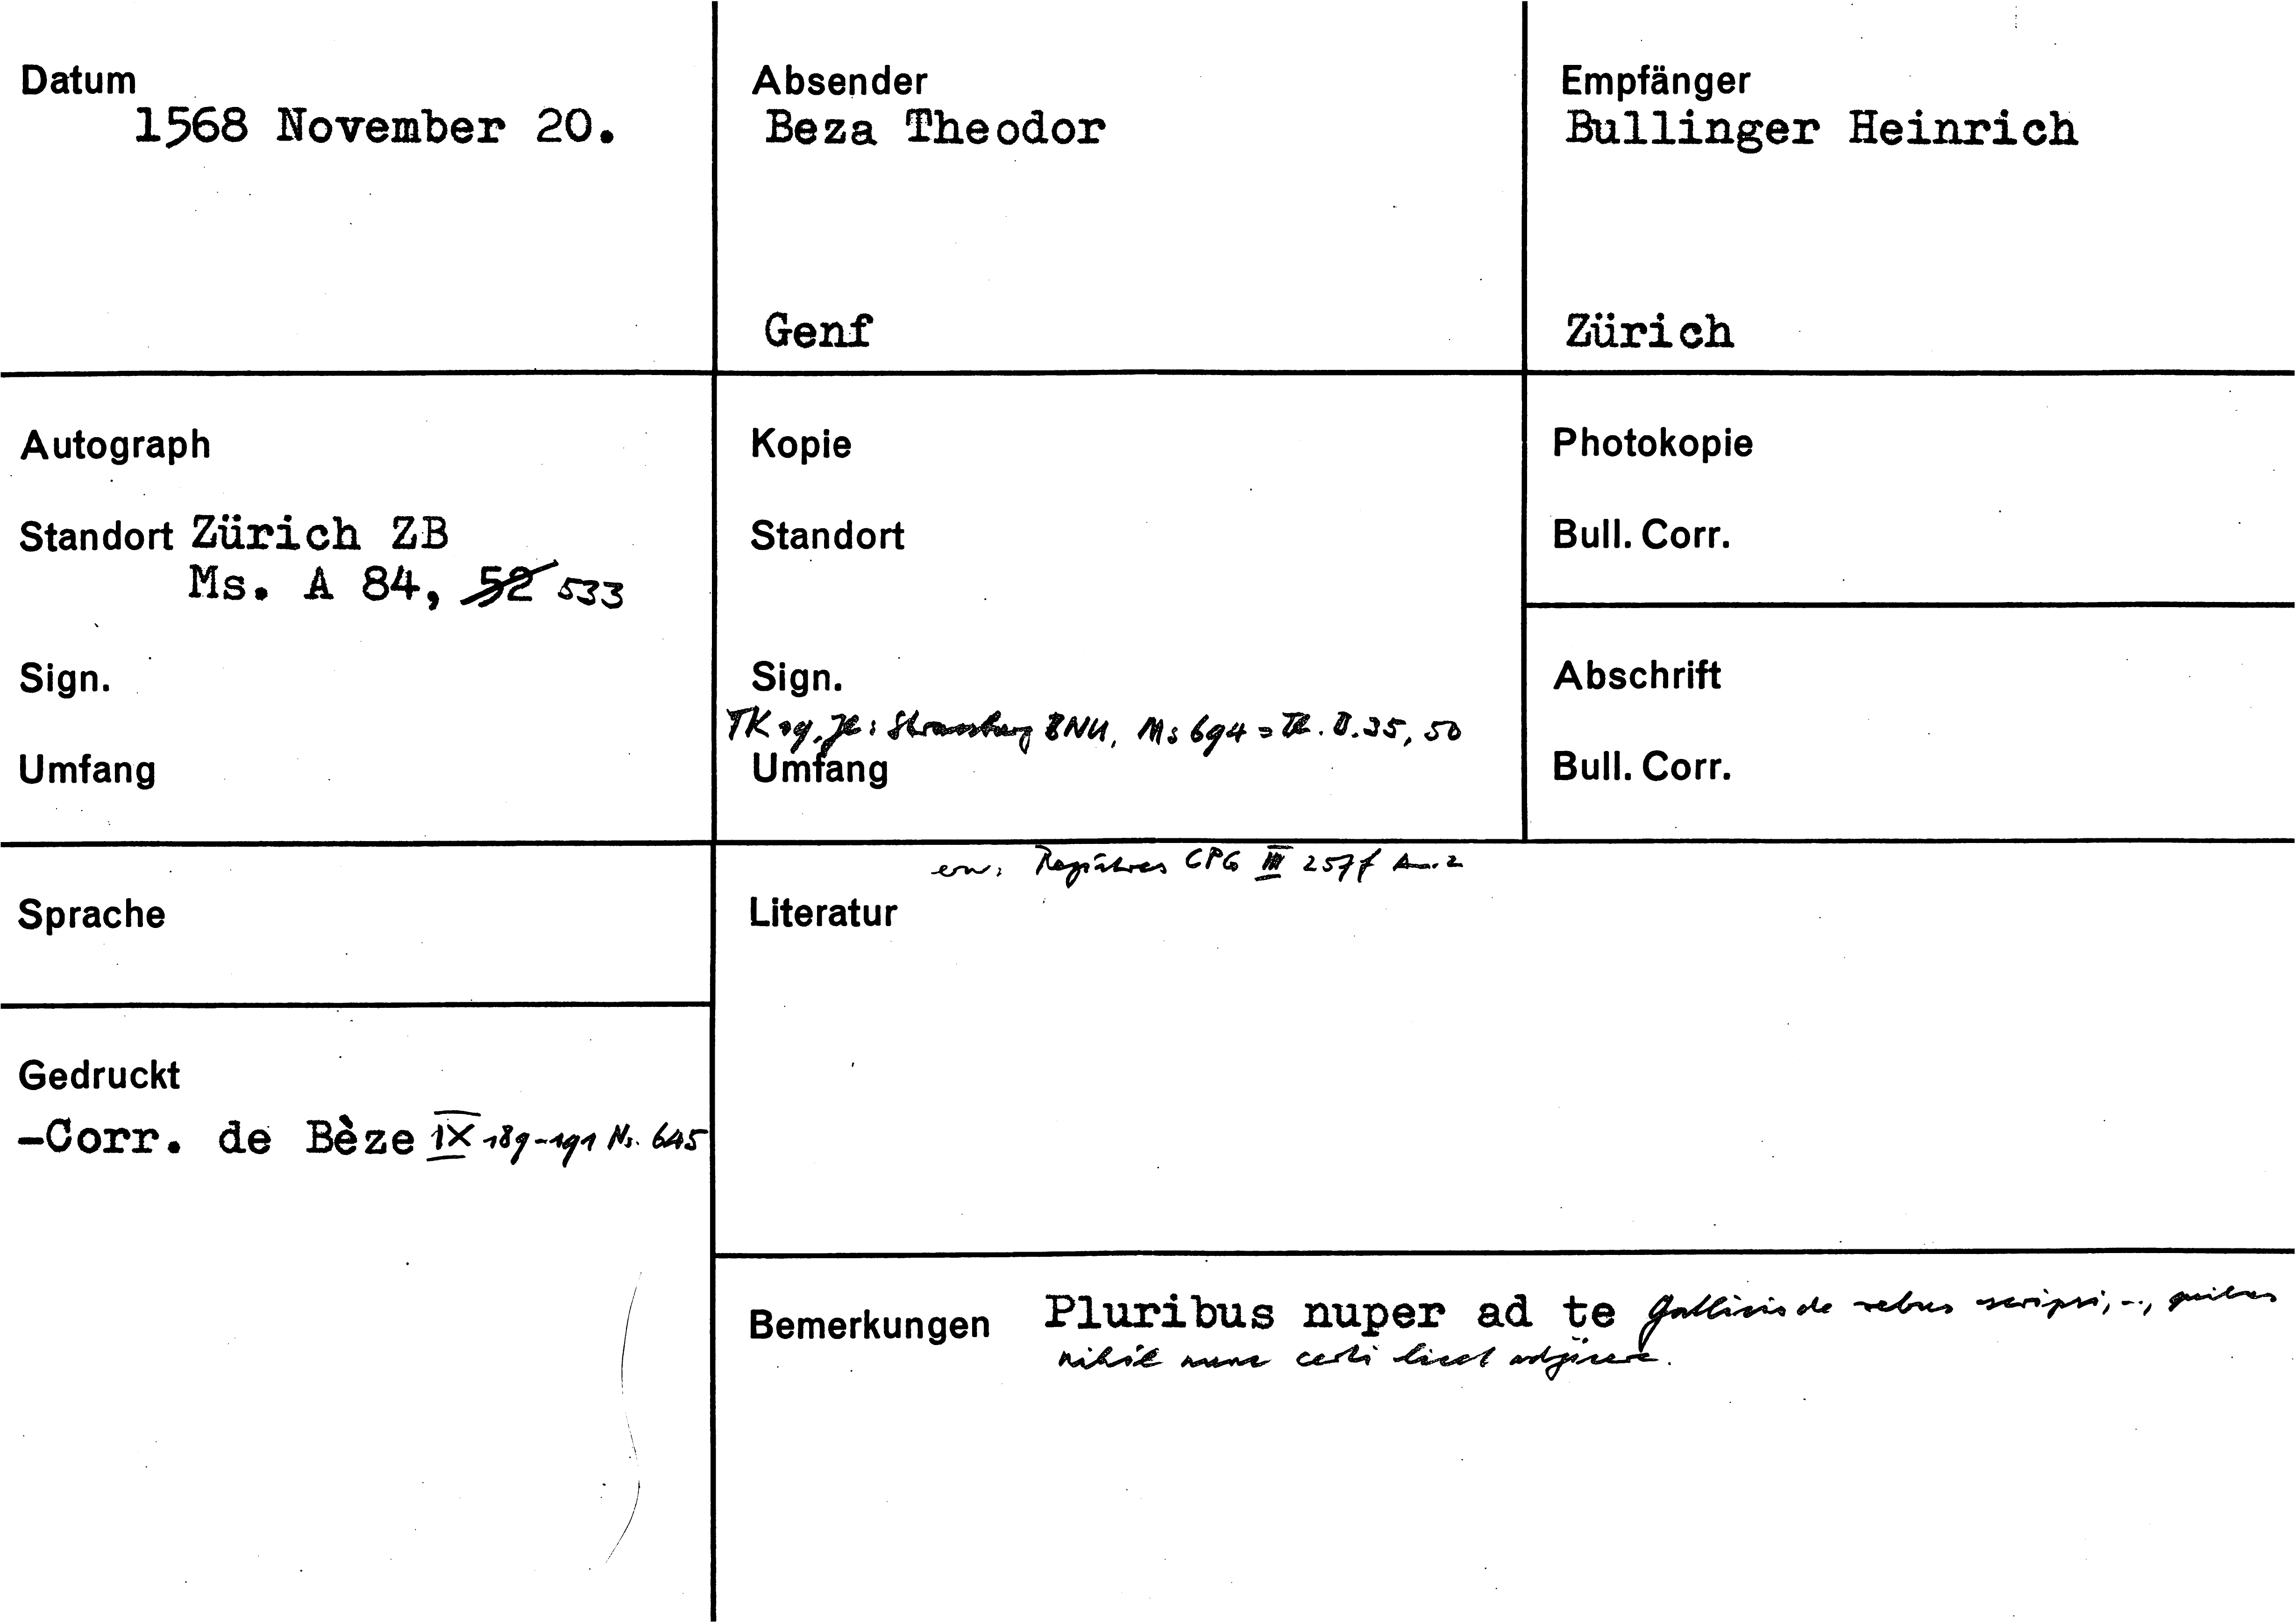 Datum
1568 November 20.
Absender
Beza Theodor
Genf
Empfänger
Bullinger Heinrich
Zürich
Autograph
Standort Zürich ZB
Ms. A 84, 52 533
Sign.
Umfang
Kopie
Standort
Sign.
TK Strassburg BNU, Ms 694 = Th. 35, 50
Umfang
Photokopie
Bull. Corr.
Abschrift
Bull. Corr.
Sprache
Gedruckt
-Corr. de Bèze IX 189-191 Nr. 645
erw: Registres CPG III 257f Anm. 2
Literatur
Bemerkungen Pluribus nuper ad te Gallicis de rebus scripsi, .., quibus
nihil nunc certi licet adjicere.